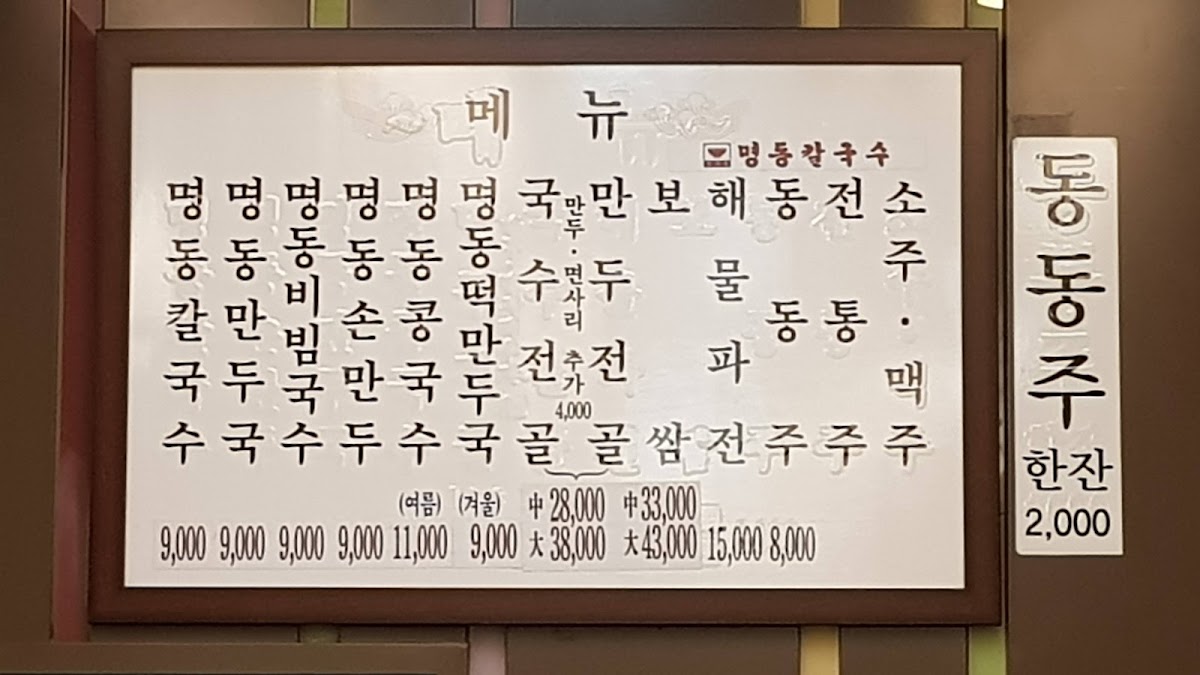 메뉴
명동칼국수
명동칼국수
명동만두국
명동비빔국수
명동손만두
명동콩국수
명동떡만두국
국수전골
만두·면사리 추가
4,000
만두전골
보쌈
해물파전
동동주
전통주
소주·맥주
(여름) (겨울) 中 28,000 中 33,000
9,000 9,000 9,000 9,000 11,000 9,000 大 38,000 大 43,000 15,000 8,000
동동주
한잔
2,000